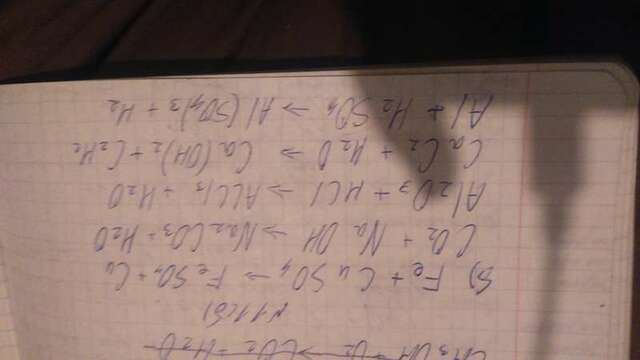 CH3OH + O2 → CO2 + H2O
№11(б)
б) Fe + CuSO4 → FeSO4 + Cu
CO2 + NaOH → Na2CO3 + H2O
Al2O3 + HCl → AlCl3 + H2O
CaC2 + H2O → Ca(OH)2 + C2H2
Al + H2SO4 → Al(SO4)3 + H2